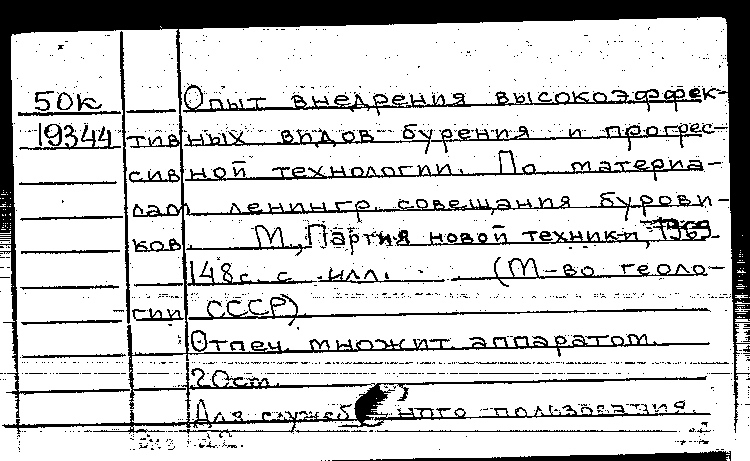 50к Опыт внедрения высокоэффек-
19344 тивных видов бурения и прогрес-
сивной технологии. По материа-
лам ленингр. совещания бурови-
ков. М., Партия новой техники, 1969
148с. с илл. (М-во геоло-
гии СССР)
Отпеч. множит. аппаратом.
20
Для служебного пользования.